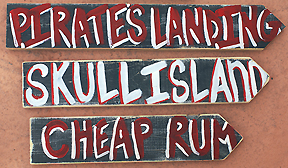 PIRATES LANDING
SKULL ISLAND
CHEAP RUM